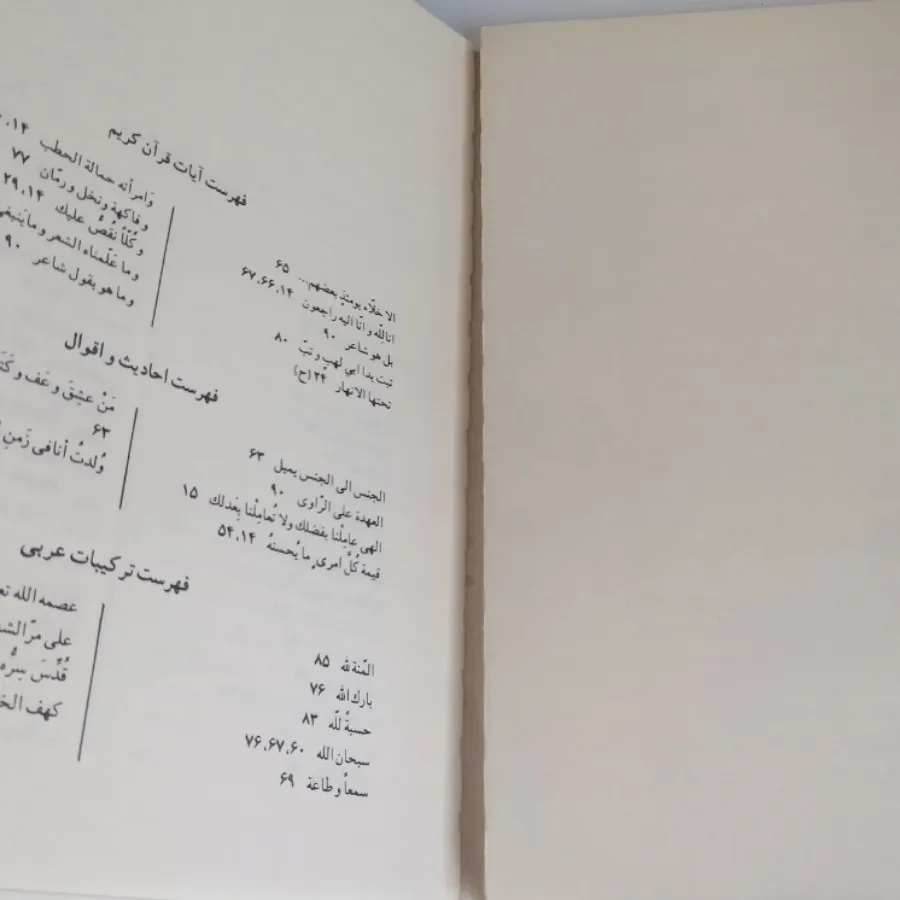 فهرست آیات قرآن کریم
الاخلّاء یومئذٍ بعضهم... ۶۵
اناللّٰه و انّا الیه راجعون ۱۴، ۶۶، ۶۷
بل هو شاعر ۹۰
تبت یدا ابی لهب و تبّ ۸۰
تحتها الانهار ۲۴ (ح)
وَامرأته حمالة الحطب ۱۴،
و فاکهة و نخل و رمّان ۷۷
و کُلّاً نقُصُّ علیك ۱۴، ۲۹
و ما عَلّمناه الشعر و ما ینبغی
و ما هو بقول شاعر ۹۰
فهرست احادیث و اقوال
الجنس الی الجنس یمیل ۶۳
العهدة علی الرّاوی ۹۰
الهی عامِلْنا بفضلك ولا تُعامِلْنا بِعَدلك ۱۵
قیمة کُلُّ امریءٍ ما یُحسنهُ ۱۴، ۵۴
مَنْ عشِقَ و عَف و کَتَ
۶۳
وُلدتُ أنا فی زَمنِ
فهرست ترکیبات عربی
المّنة لله ۸۵
بارك الله ۷۶
حسبةً للّه ۸۳
سبحان الله ۶۰، ۶۷، ۷۶
سمعاً و طاعة ۶۹
عصمه الله
علی مرّ
قُدِّسَ سِرُّه
کهف